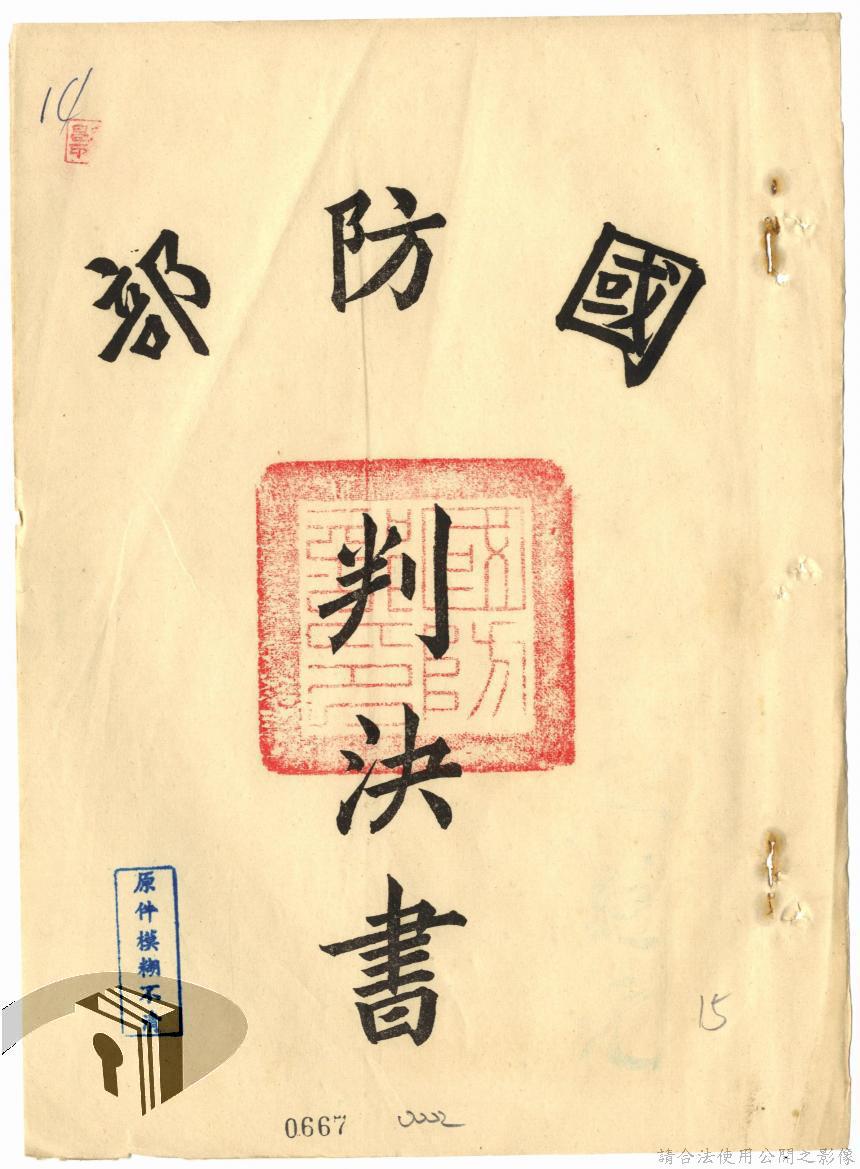 14
國防部
判決書
原件模糊不清
15
0667
請合法使用公開之影像